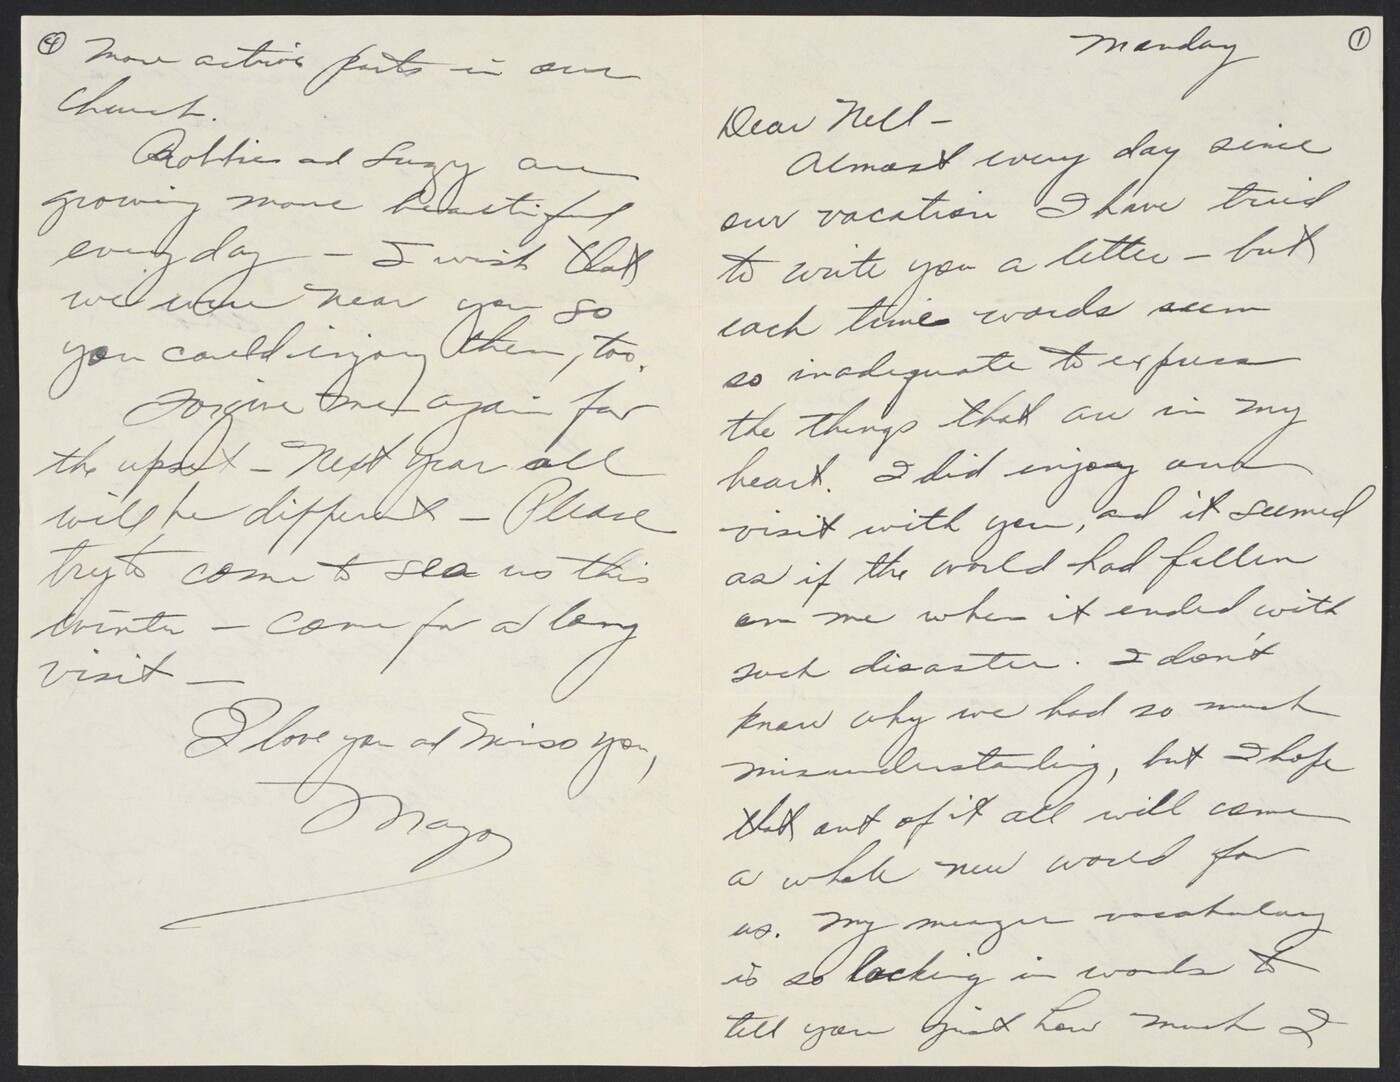 ④
More active parts in our
Church.
Robbie ad Suzy are
growing more beautiful
every day – I wish that
we were near you so
you could enjoy them, too.
Forgive me again for
the upset – Next year all
will be different – Please
try to come to see us this
winter – come for a long
visit –
I love you ad miss you,
Mayo
①
Monday
Dear Nell –
Almost every day since
our vacation I have tried
to write you a letter – but
each time words seem
so inadequate to express
the things that are in my
heart. I did enjoy our
visit with you, ad it seemed
as if the world had fallen
on me when it ended with
such disaster. I don't
know why we had so much
misunderstanding, but I hope
that out of it all will come
a whole new world for
us. My meager vocabulary
is so lacking in words to
tell you just how much I